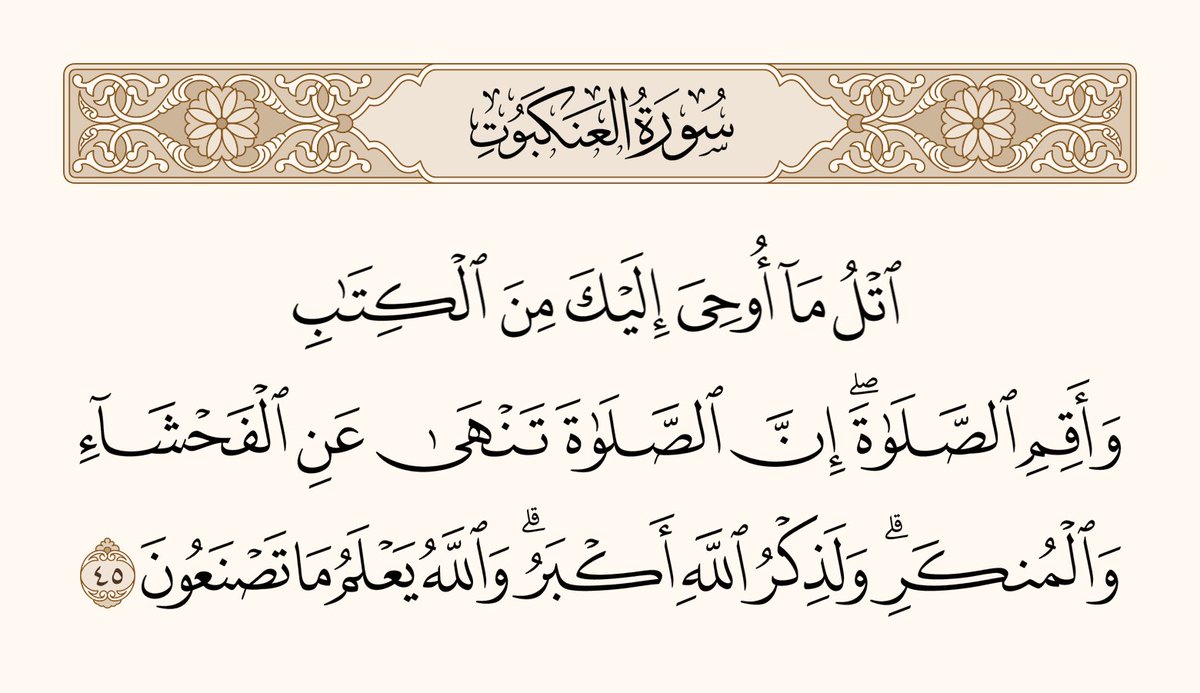 سُورَةُ العَنكَبُوتِ
ٱتۡلُ مَآ أُوحِيَ إِلَيۡكَ مِنَ ٱلۡكِتَٰبِ
وَأَقِمِ ٱلصَّلَوٰةَۖ إِنَّ ٱلصَّلَوٰةَ تَنۡهَىٰ عَنِ ٱلۡفَحۡشَآءِ
وَٱلۡمُنكَرِۗ وَلَذِكۡرُ ٱللَّهِ أَكۡبَرُۗ وَٱللَّهُ يَعۡلَمُ مَا تَصۡنَعُونَ ٤٥